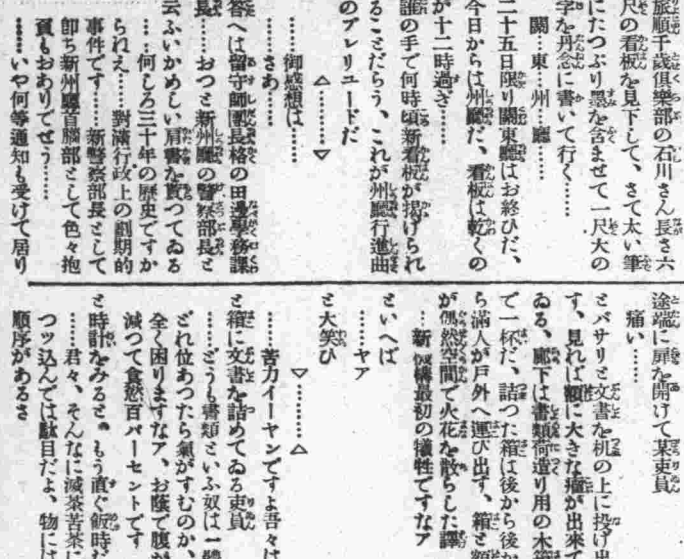 旅順千歲俱樂部の石川さん長さ六
尺の看板を見下して、さて太い筆
にたつぷり墨を含ませて一尺大の
字を丹念に書いて行く……
關…東…州…廳………
二十五日限り關東廳はお終ひだ、
今日からは州廳だ、看板は乾くの
が十二時過ぎ……
誰の手で何時頃新看板が揭げられ
ることだらう、これが州廳行進曲
のプレリユードだ
△………▽
……御感想は……
……さあ……
答へは留守師團長格の田邊學務課
長……おつと新州廳の警察部長と
云ふいかめしい肩書を貰つてゐる
……何しろ三十年の歷史ですか
られえ……對滿行政上の劃期的
事件です……新警察部長として
卽ち新州廳首腦部として色々抱
負もおありでせう……
……いや何等通知も受けて居り
途端に扉を開けて某吏員
痛い……
とバサリと文書を机の上に投げ
す、見れば額に大きな瘤が出來て
ゐる、廊下は書類荷造り用の木箱
で一杯だ、詰つた箱は後から後か
ら滿人が戶外へ運び出す、箱と額
が偶然空間で火花を散らした譯
…新機構最初の犧牲ですなア
といへば
……ヤア
と大笑ひ
▽………△
……苦力イーヤンですよ吾々は
と箱に文書を詰めてゐる吏員
……どうも書類といふ奴は一體
どれ位あつたら氣がすむのか、
全く困りますなア、お蔭で腹が
減つて食慾百パーセントです
と時計をみると。もう直ぐ飯時だ
……君々、そんなに滅茶苦茶に
つツ込んでは駄目だよ、物には
順序があるさ